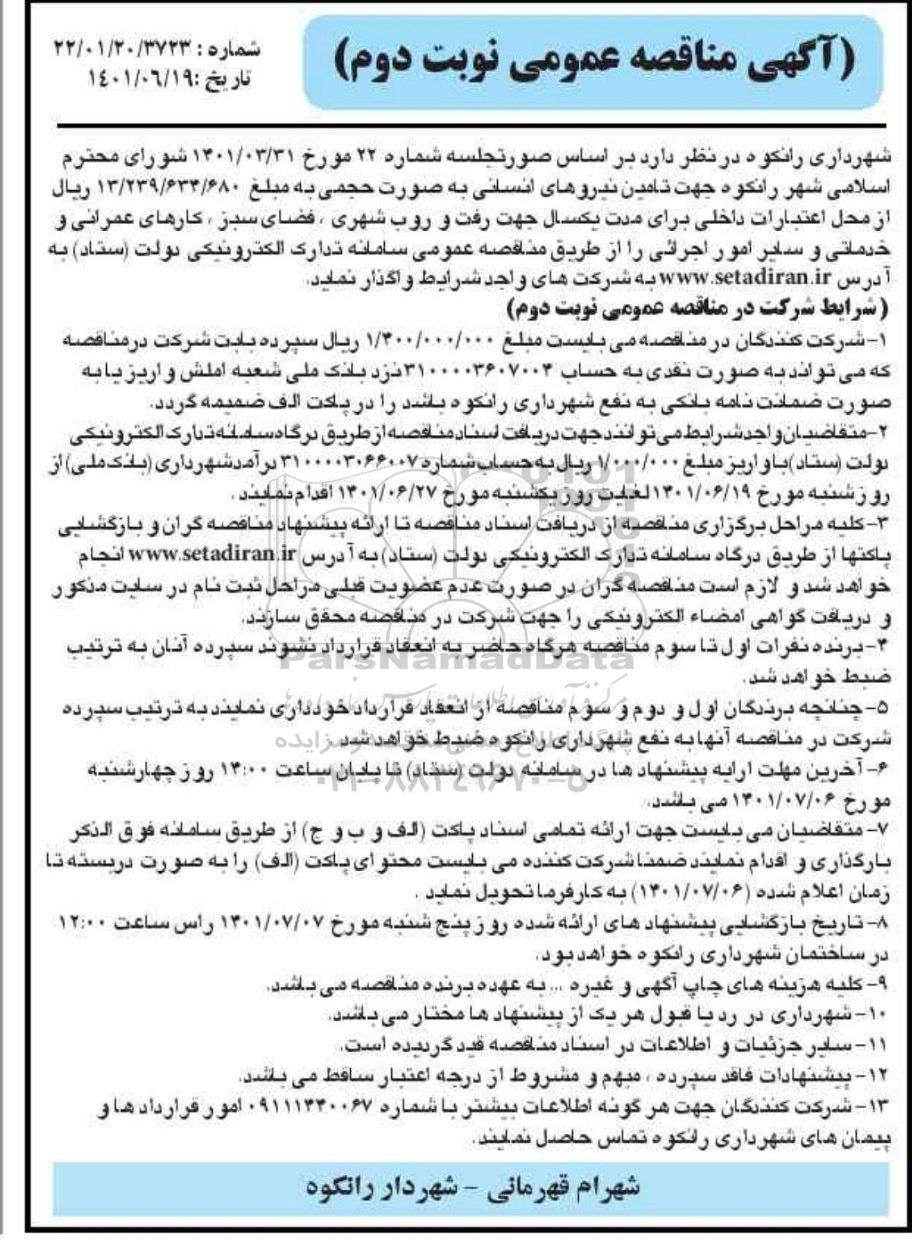 (آگهی مناقصه عمومی نوبت دوم)
شماره : ۲۲/۰۱/۲۰/۳۷۲۳
تاریخ :۱۴۰۱/۰۶/۱۹
شهرداری رانکوه در نظر دارد بر اساس صورتجلسه شماره ۲۲ مورخ ۱۴۰۱/۰۳/۳۱ شورای محترم
اسلامی شهر رانکوه جهت تامین نیروهای انسانی به صورت حجمی به مبلغ ۱۳/۲۳۹/۶۳۴/۶۸۰ ریال
از محل اعتبارات داخلی برای مدت یکسال جهت رفت و روب شهری ، فضای سبز ، کارهای عمرانی و
خدماتی و سایر امور اجرائی را از طریق مناقصه عمومی سامانه تدارک الکترونیکی دولت (ستاد) به
آدرس www.setadiran.ir به شرکت های واجد شرایط واگذار نماید.
(شرایط شرکت در مناقصه عمومی نوبت دوم)
۱-شرکت کنندگان در مناقصه می بایست مبلغ ۱/۴۰۰/۰۰۰/۰۰۰ ریال سپرده بابت شرکت درمناقصه
که می تواند به صورت نقدی به حساب ۳۱۰۰۰۰۳۶۰۷۰۰۴نزد بانک ملی شعبه املش واریز یا به
صورت ضمانت نامه بانکی به نفع شهرداری رانکوه باشد را در پاکت الف ضمیمه گردد.
۲-متقاضیان واجد شرایط می توانند جهت دریافت اسناد مناقصه از طریق درگاه سامانه تدارک الکترونیکی
دولت (ستاد) با واریز مبلغ ۱/۰۰۰/۰۰۰ ریال به حساب شماره ۳۱۰۰۰۰۳۰۶۶۰۰۷ درآمد شهرداری (بانک ملی) از
روز شنبه مورخ ۱۴۰۱/۰۶/۱۹لغایت روز یکشنبه مورخ ۱۴۰۱/۰۶/۲۷ اقدام نمایند .
۳-کلیه مراحل برگزاری مناقصه از دریافت اسناد مناقصه تا ارائه پیشنهاد مناقصه گران و بازگشایی
پاکتها از طریق درگاه سامانه تدارک الکترونیکی دولت (ستاد) به آدرس www.setadiran.ir انجام
خواهد شد و لازم است مناقصه گران در صورت عدم عضویت قبلی مراحل ثبت نام در سایت مذکور
و دریافت گواهی امضاء الکترونیکی را جهت شرکت در مناقصه محقق سازند.
۴-برنده نفرات اول تا سوم مناقصه هرگاه حاضر به انعقاد قرارداد نشوند سپرده آنان به ترتیب
ضبط خواهد شد.
۵-چنانچه برندگان اول و دوم و سوم مناقصه از انعقاد قرارداد خودداری نمایند به ترتیب سپرده
شرکت در مناقصه آنها به نفع شهرداری رانکوه ضبط خواهد شد
۶-آخرین مهلت ارایه پیشنهاد ها در سامانه دولت (ستاد) تا پایان ساعت ۱۴:۰۰ روز چهارشنبه
مورخ ۱۴۰۱/۰۷/۰۶ می باشد.
۷-متقاضیان می بایست جهت ارائه تمامی اسناد پاکت (الف و ب و ج) از طریق سامانه فوق الذکر
بارگذاری و اقدام نمایند ضمنا شرکت کننده می بایست محتوای پاکت (الف) را به صورت دربسته تا
زمان اعلام شده (۱۴۰۱/۰۷/۰۶) به کارفرما تحویل نماید .
۸-تاریخ بازگشایی پیشنهاد های ارائه شده روز پنج شنبه مورخ ۱۴۰۱/۰۷/۰۷ راس ساعت ۱۲:۰۰
در ساختمان شهرداری رانکوه خواهد بود.
۹-کلیه هزینه های چاپ آگهی و غیره ... به عهده برنده مناقصه می باشد.
۱۰-شهرداری در رد یا قبول هر یک از پیشنهاد ها مختار می باشد.
۱۱-سایر جزئیات و اطلاعات در اسناد مناقصه قید گردیده است.
۱۲-پیشنهادات فاقد سپرده ، مبهم و مشروط از درجه اعتبار ساقط می باشد.
۱۳-شرکت کنندگان جهت هر گونه اطلاعات بیشتر با شماره ۰۹۱۱۱۴۴۰۰۶۷ امور قرارداد ها و
پیمان های شهرداری رانکوه تماس حاصل نمایند.
شهرام قهرمانی - شهردار رانکوه
ParsNamadData
۰۲۱-۸۸۳۴۹۶۷۰-۵